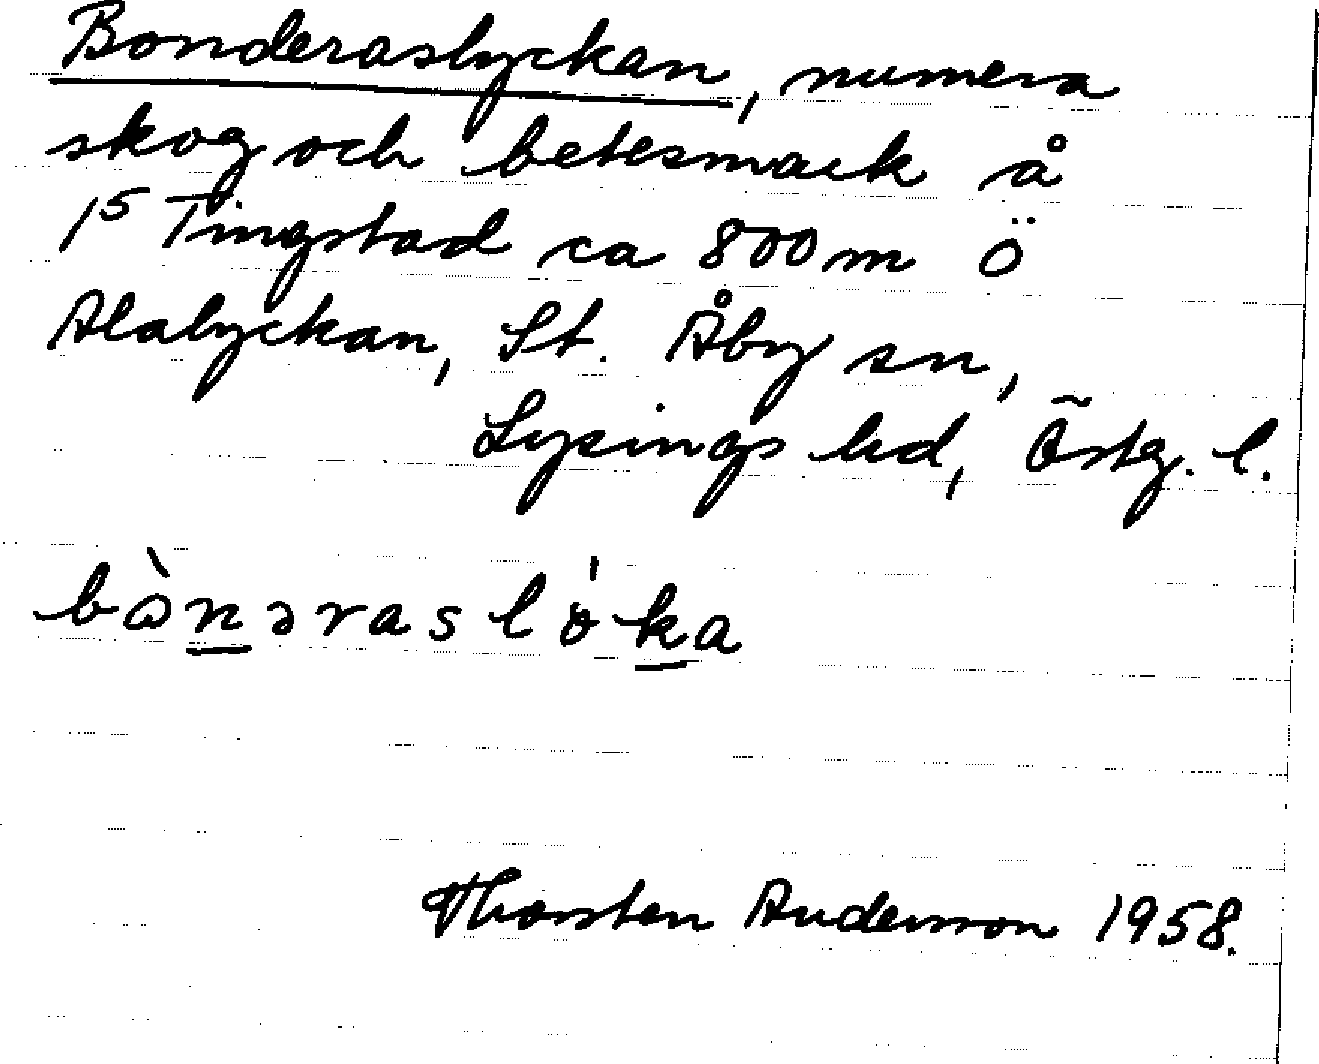 Bonderaslyckan, numera
skog och betesmark å
1⁵ Tingstad ca 800 m Ö
Alalyckan, St. Åby sn,
Lysings hd, Östg. l.
bὼnəraslo̍ka
Thorsten Andersson 1958.